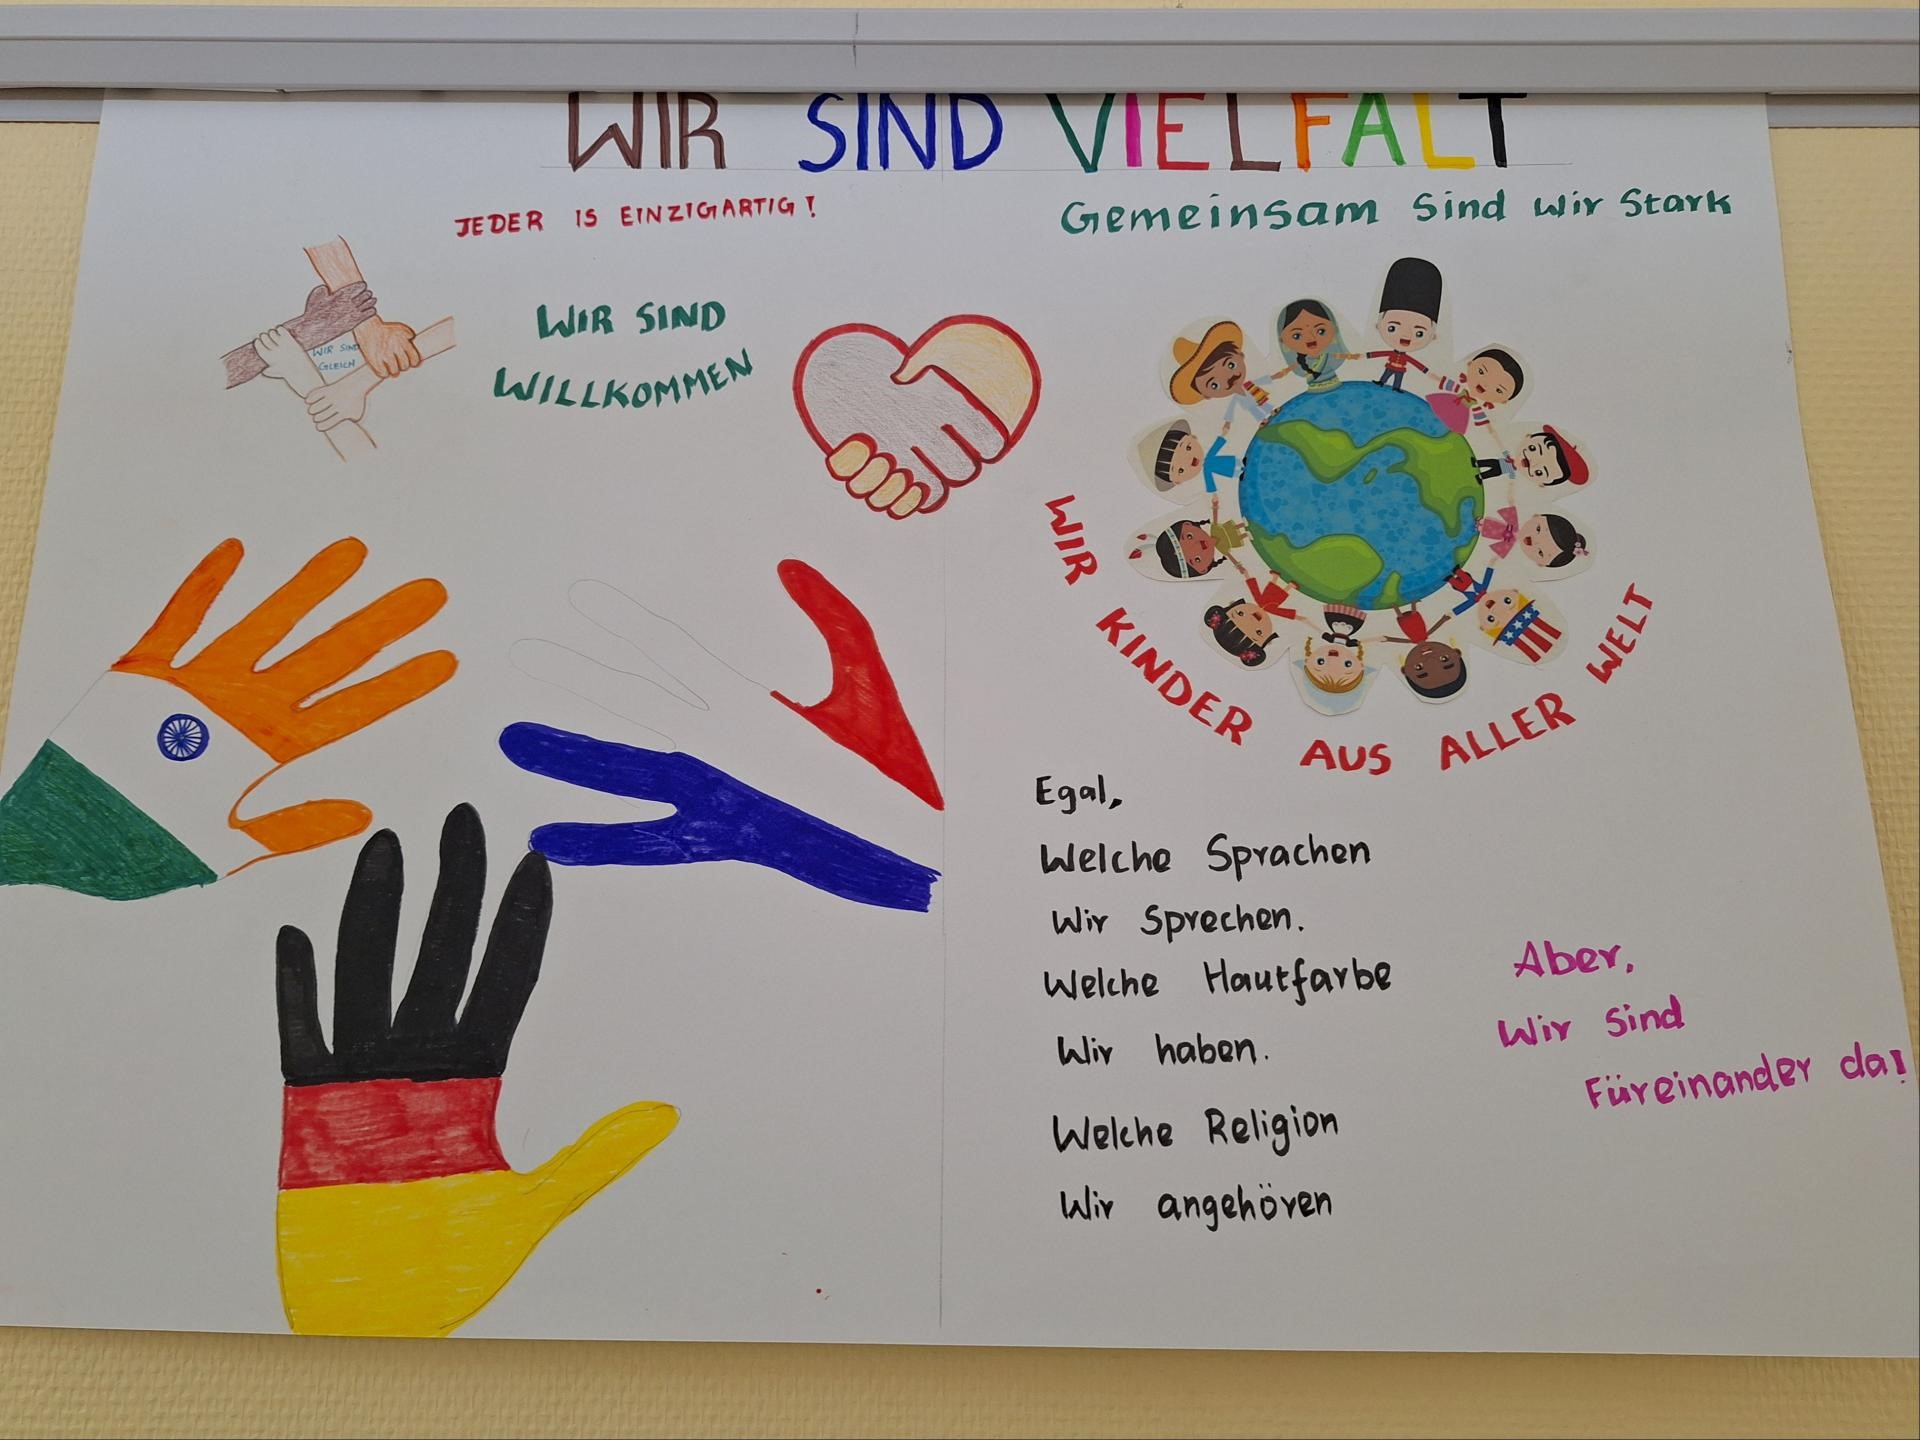 WIR SIND VIELFALT
JEDER IS EINZIGARTIG!
Gemeinsam Sind Wir Stark
WIR SIND
GLEICH
WIR SIND
WILLKOMMEN
WIR KINDER AUS ALLER WELT
Egal,
Welche Sprachen
Wir Sprechen.
Welche Hautfarbe
Wir haben.
Welche Religion
Wir angehören
Aber,
Wir Sind
Füreinander da!